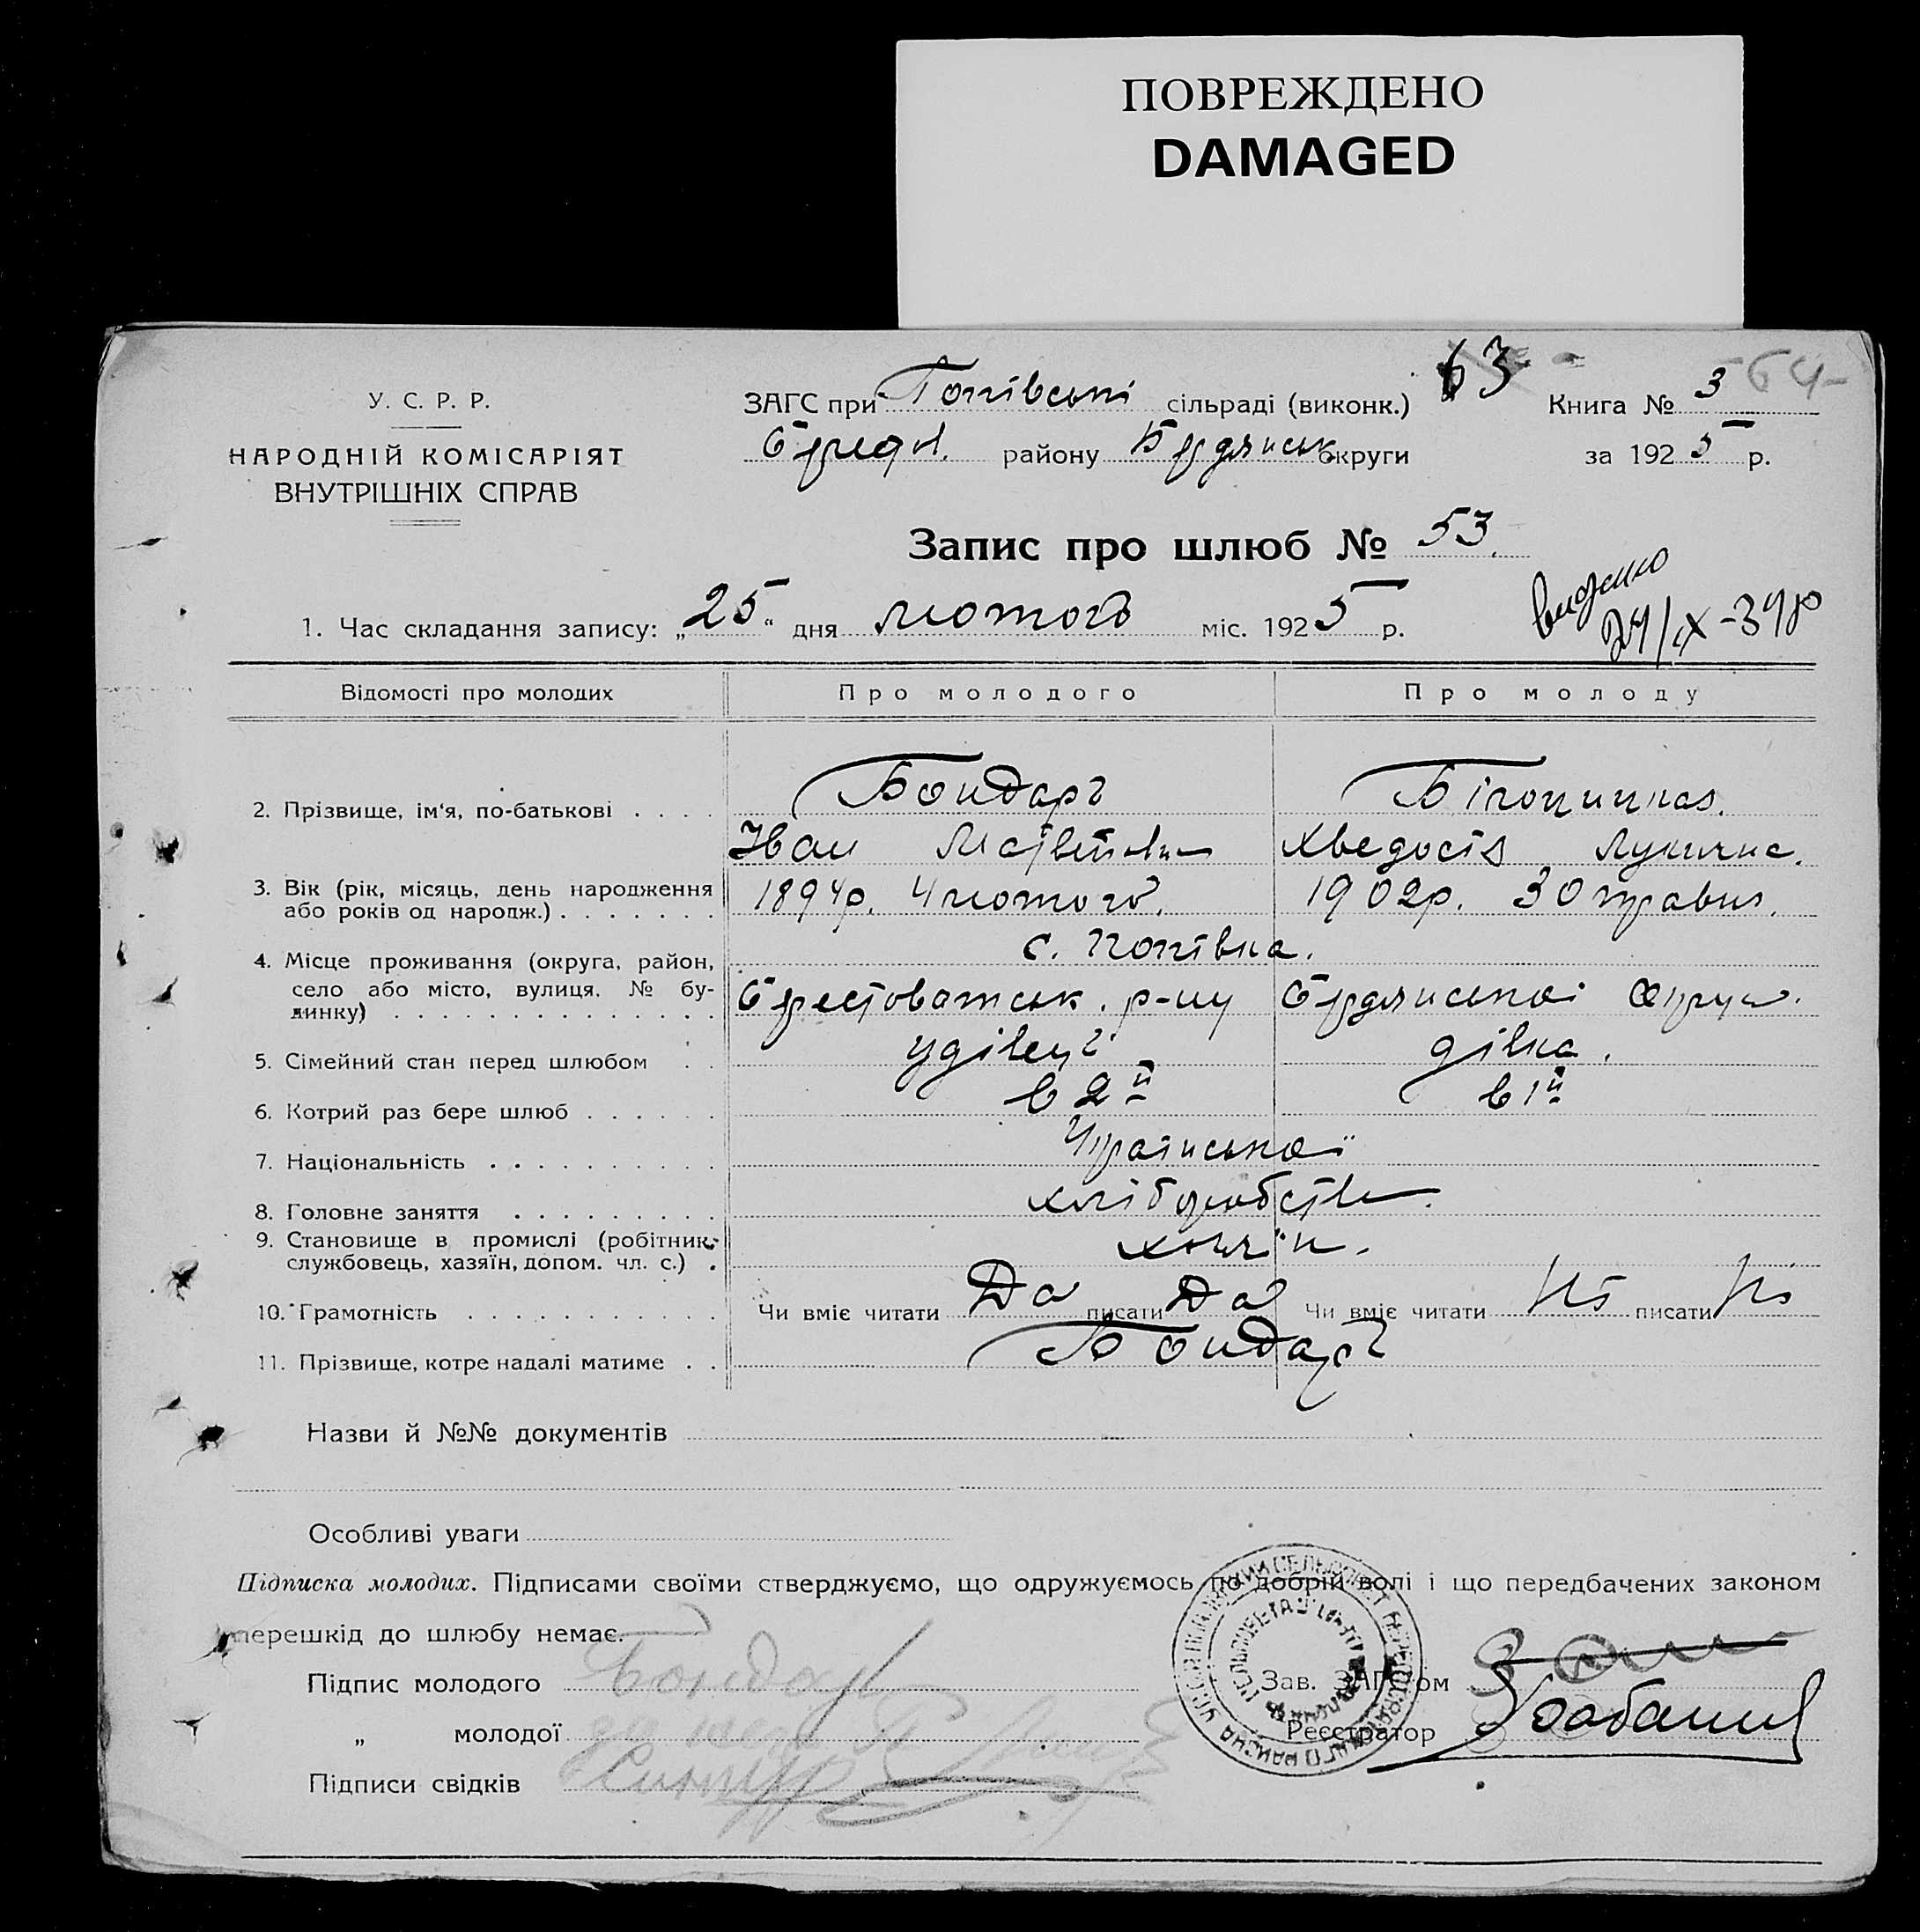 ПОВРЕЖДЕНО
DAMAGED
У. С. Р. Р.
НАРОДНІЙ КОМІСАРІЯТ
ВНУТРІШНІХ СПРАВ
ЗАГС при Попівські сільраді (виконк.) 63 Книга № 3 64
району Бердянськ. округи за 1925 р.
Запис про шлюб № 53.
видано
1. Час складання запису: „25“ дня лютого міс. 1925 р.
Відомості про молодих Про молодого Про молоду
2. Прізвище, ім'я, по-батькові . . . . Бондарь
Іван Хведосія
3. Вік (рік, місяць, день народження або років од народж.) . . . . . . . 1894р. 4 лютого. 1902р. 30 травня.
с. Попівка.
4. Місце проживання (округа, район, село або місто, вулиця, № будинку) . . . . . . . . . . . . . . р-ну Бердянської Округи.
5. Сімейний стан перед шлюбом . . удівець дівка.
6. Котрий раз бере шлюб . . . . . . в 2й в 1й
7. Національність . . . . . . . . . .
8. Головне заняття . . . . . . . . . хліборобство.
9. Становище в промислі (робітник, службовець, хазяїн, допом. чл. с.) . хазяін.
10. Грамотність . . . . . . . . . . . Чи вміє читати Да писати Да Чи вміє читати Ні писати Ні
11. Прізвище, котре надалі матиме . . Бондарь
Назви й №№ документів
Особливі уваги
Підписка молодих. Підписами своїми стверджуємо, що одружуємось по добрій волі і що передбачених законом
перешкід до шлюбу немає.
Підпис молодого Бондарь Зав. ЗАГС'ом
„ молодої Реєстратор
Підписи свідків